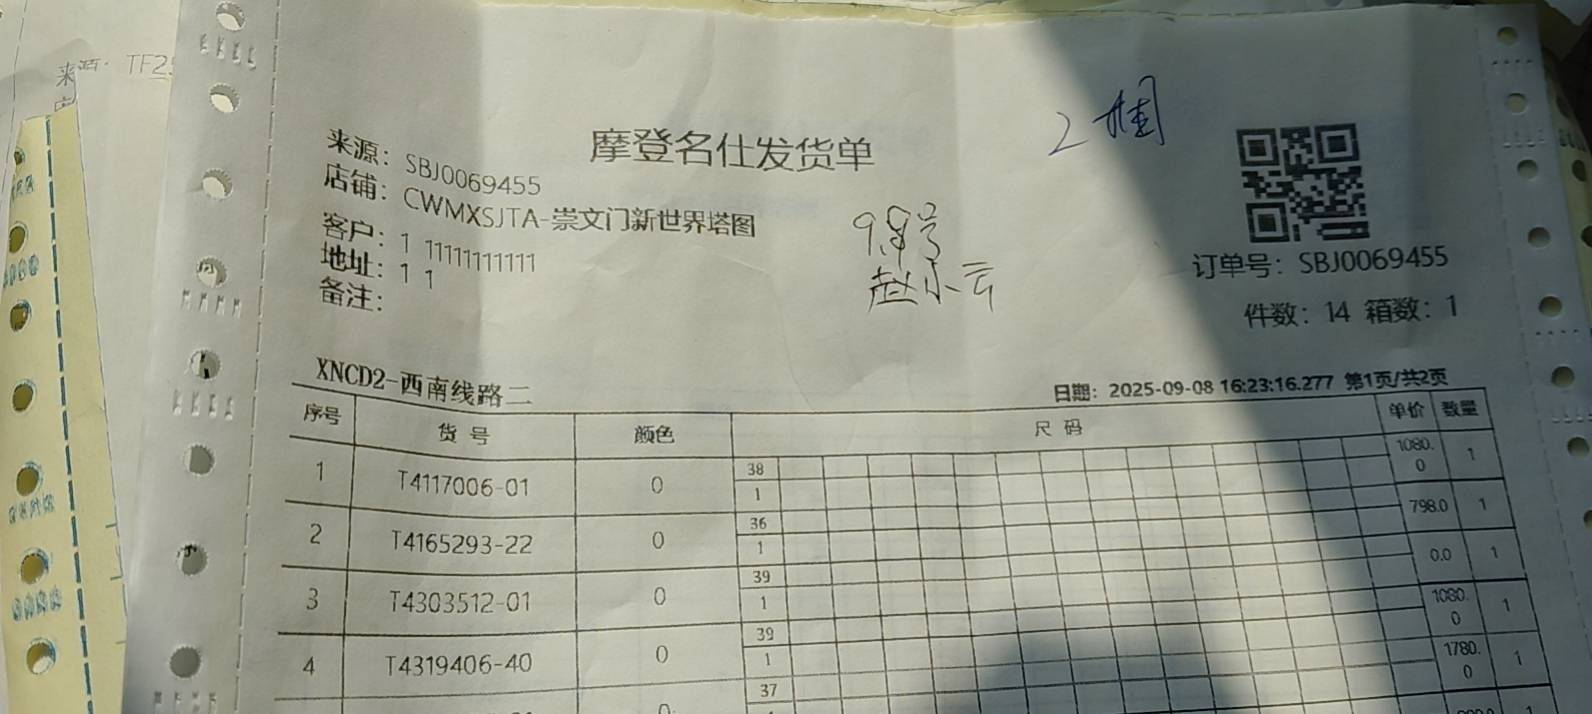 来源: TF2
摩登名仕发货单
2 捆
来源: SBJ0069455
店铺: CWMXSJTA-崇文门新世界塔图
客户: 1 11111111111
地址: 1 1
备注:
98号
赵小云
订单号: SBJ0069455
件数: 14 箱数: 1
XNCD2-西南线路二
日期: 2025-09-08 16:23:16.277 第1页/共2页
序号 货号 颜色 尺码 单价 数量
1 T4117006-01 0 38 1 1080.0 1
2 T4165293-22 0 36 1 798.0 1
3 T4303512-01 0 39 1 0.0 1
4 T4319406-40 0 39 1 1080.0 1
37 1780.0 1